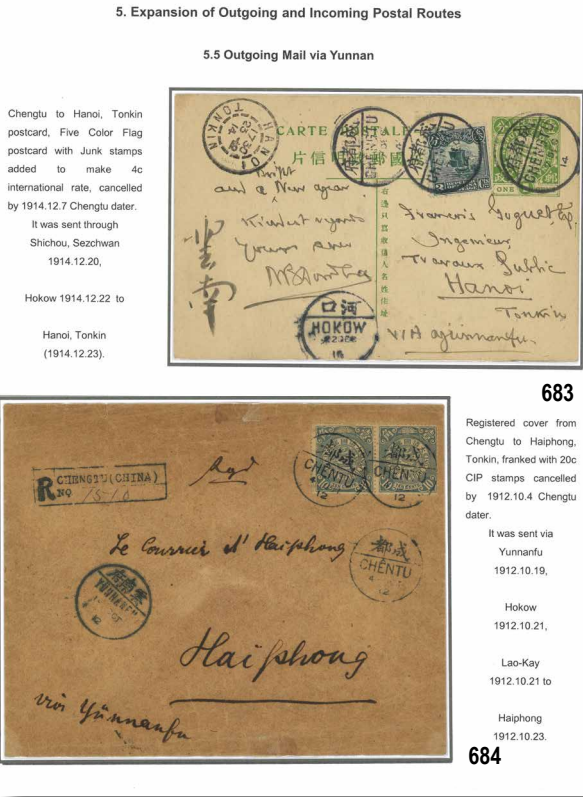 5. Expansion of Outgoing and Incoming Postal Routes
5.5 Outgoing Mail via Yunnan
Chengtu to Hanoi, Tonkin
postcard, Five Color Flag
postcard with Junk stamps
added to make 4c
international rate, cancelled
by 1914.12.7 Chengtu dater.
It was sent through
Shichou, Sezchwan
1914.12.20,
Hokow 1914.12.22 to
Hanoi, Tonkin
(1914.12.23).
HANOI
TONKIN
CARTE POSTALE
CHENTU
CHENTU
CHENTU
ONE
Bright
and a New year
Kindest regards
Yours ever
雲南
河口
HOKOW
Francois
Ingenieur,
Travaux Public
Hanoi
Tonkin
VIA
683
R CHENGTU (CHINA)
NO 1510
Rgd
成都
CHENTU
12
成都
CHENTU
12
Le Courrier d'Haiphong
成都
CHENTU
12
YUNNANFU
12
Haiphong
via Yünnanfu
Registered cover from
Chengtu to Haiphong,
Tonkin, franked with 20c
CIP stamps cancelled
by 1912.10.4 Chengtu
dater.
It was sent via
Yunnanfu
1912.10.19,
Hokow
1912.10.21,
Lao-Kay
1912.10.21 to
Haiphong
1912.10.23.
684